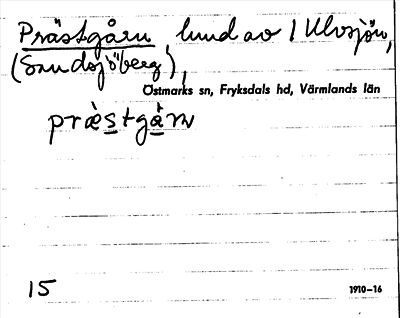 Prästgårn, lund av 1 Ulvsjön,
(Sandsjöberg),
Östmarks sn, Fryksdals hd, Värmlands län
præ̀stgå̀rn
15 1910-16